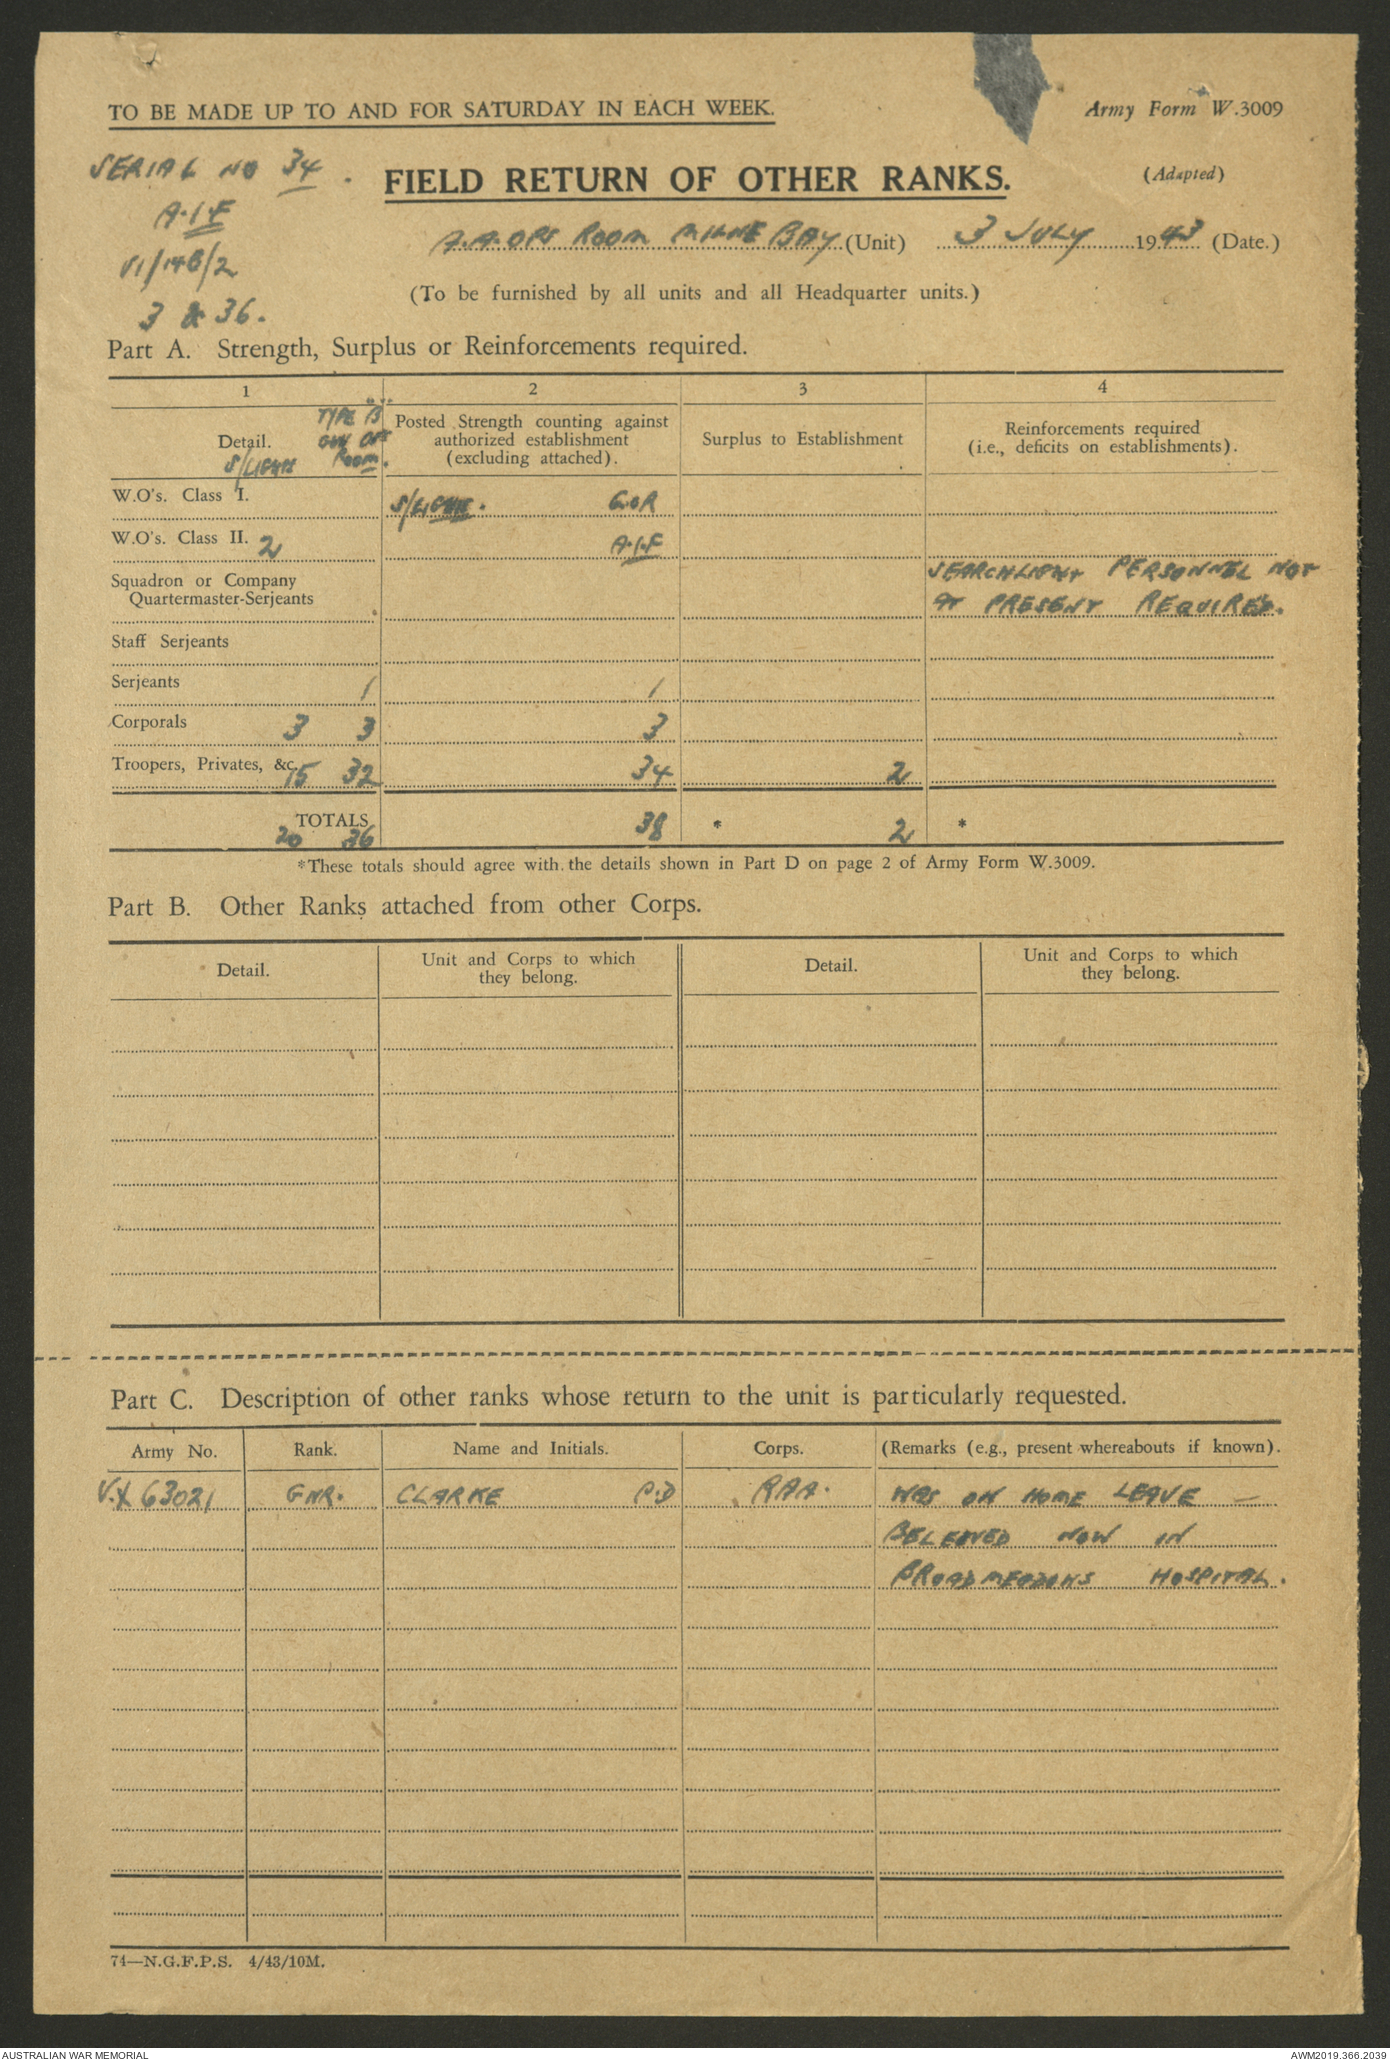 TO BE MADE UP TO AND FOR SATURDAY IN EACH WEEK.
Army Form W.3009
(Adapted)
SERIAL NO 34.
FIELD RETURN OF OTHER RANKS.
A.I.F
A.A. OPS ROOM MILNE BAY (Unit) 3 JULY 1943 (Date.)
VI/14B/2
(To be furnished by all units and all Headquarter units.)
3 & 36.
Part A. Strength, Surplus or Reinforcements required.
1 2 3 4
Detail.
TYPE B
GUN OPS
S/LIGHTS ROOM.
Posted Strength counting against
authorized establishment
(excluding attached).
Surplus to Establishment
Reinforcements required
(i.e., deficits on establishments).
W.O's. Class I. S/LIGHTS. G.O.R
W.O's. Class II. 2 A.I.F
SEARCHLIGHT PERSONNEL NOT
AT PRESENT REQUIRED.
Squadron or Company
Quartermaster-Serjeants
Staff Serjeants
Serjeants 1 1
Corporals 3 3 3
Troopers, Privates, &c. 15 32 34 2
TOTALS 20 36 38 * 2 *
*These totals should agree with the details shown in Part D on page 2 of Army Form W.3009.
Part B. Other Ranks attached from other Corps.
Detail.
Unit and Corps to which
they belong.
Detail.
Unit and Corps to which
they belong.
Part C. Description of other ranks whose return to the unit is particularly requested.
Army No. Rank. Name and Initials. Corps. (Remarks (e.g., present whereabouts if known).
V.X 63021 GNR. CLARKE P.D RAA. WAS ON HOME LEAVE —
BELEIVED NOW IN
BROADMEADOWS HOSPITAL.
74—N.G.F.P.S. 4/43/10M.
AUSTRALIAN WAR MEMORIAL
AWM2019.366.2039